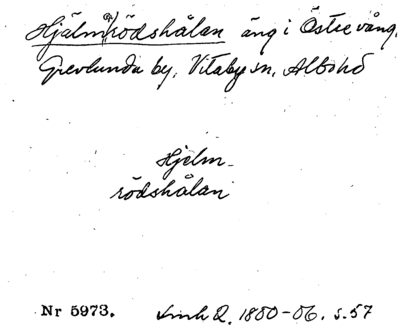 Hjälm(a)rödshålan äng i Östre vång,
Grevlunda by, Vitaby sn, Albo hd
Hjelm-
rödshålan
Nr 5973.
Lmh Q. 1800-06. s. 57